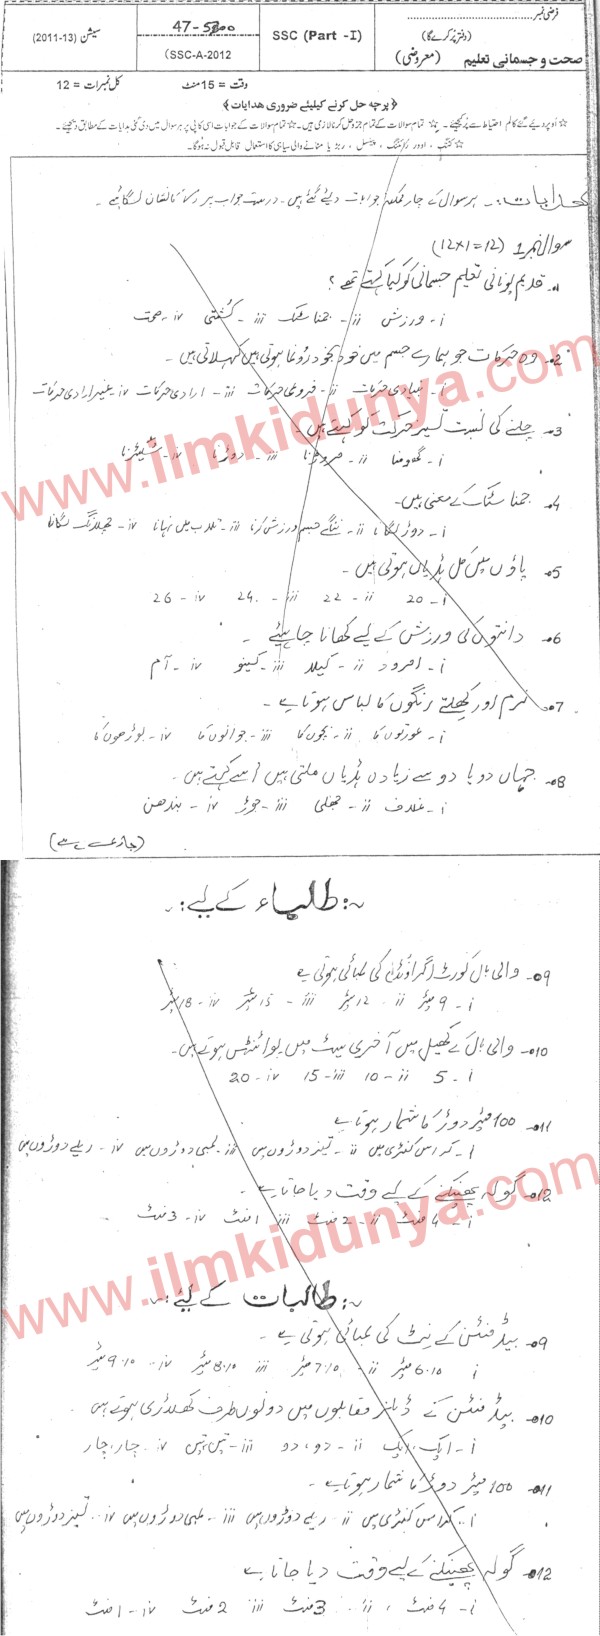 فرضی نمبر
(دفتر پُر کرے گا)
صحت و جسمانی تعلیم (معروضی)
SSC (Part -I)
47-5800
(SSC-A-2012
سیشن (2011-13)
وقت = 15 منٹ
کل نمبرات = 12
﴿ پرچہ حل کرنے کیلیئے ضروری ھدایات ﴾
ھدایات:- ہر سوال کے چار ممکنہ جوابات دیئے گئے ہیں۔ درست جواب پر کا نشان لگائیے۔
سوال نمبر 1 (12×1=12)
1۔ قدیم یونانی تعلیم جسمانی کو کیا کہتے تھے؟
i۔ ورزش ii۔ جمناسٹک iii۔ کُشتی iv۔ صحت
2۔ وہ حرکات جو ہمارے جسم میں خود بخود رُونما ہوتی ہیں کہلاتی ہیں۔
i۔ بنیادی حرکات ii۔ فروعی حرکات iii۔ ارادی حرکات iv۔ غیر ارادی حرکات
3۔ چلنے کی نسبت تیز حرکت کو کہتے ہیں۔
i۔ گھومنا ii۔ مروڑنا iii۔ دوڑنا iv۔
4۔ جمناسٹک کے معنی ہیں۔
i۔ دوڑ لگانا ii۔ ننگے جسم ورزش کرنا iii۔ تالاب میں نہانا iv۔ چھلانگ لگانا
5۔ پاؤں میں کل ہڈیاں ہوتی ہیں۔
i۔ 20 ii۔ 22 iii۔ 24 iv۔ 26
6۔ دانتوں کی ورزش کے لیے کھانا چاہیئے۔
i۔ امرود ii۔ کیلا iii۔ کینو iv۔ آم
7۔ نرم اور کھلتے رنگوں کا لباس ہوتا ہے۔
i۔ عورتوں کا ii۔ بچوں کا iii۔ جوانوں کا iv۔ بوڑھوں کا
8۔ جہاں دو یا دو سے زیادہ ہڈیاں ملتی ہیں اُسے کہتے ہیں۔
i۔ غلاف ii۔ جھلی iii۔ جوڑ iv۔ بندھن
(جاری ہے)
طلباء کے لیے:
9۔ والی بال کورٹ / گراؤنڈ کی لمبائی ہوتی ہے
i۔ 9 میٹر ii۔ 12 میٹر iii۔ 15 میٹر iv۔ 18 میٹر
10۔ والی بال کے کھیل میں آخری سیٹ میں پوائنٹس ہوتے ہیں۔
i۔ 5 ii۔ 10 iii۔ 15 iv۔ 20
11۔ 100 میٹر دوڑ کا شمار ہوتا ہے
i۔ کراس کنٹری میں ii۔ تیز دوڑوں میں iii۔ لمبی دوڑوں میں iv۔ ریلے دوڑوں میں
12۔ گولہ پھینکنے کے لیے وقت دیا جاتا ہے۔
i۔ 4 منٹ ii۔ 2 منٹ iii۔ 1 منٹ iv۔ 3 منٹ
طالبات کے لیے:
9۔ بیڈمنٹن کے نیٹ کی لمبائی ہوتی ہے۔
i 6.10 میٹر ii۔ 7.10 میٹر iii 8.10 میٹر iv۔ 9.10 میٹر
10۔ بیڈمنٹن کے ڈبلز مقابلوں میں دونوں طرف کھلاڑی ہوتے ہیں
i۔ ایک، ایک ii۔ دو، دو iii۔ تین، تین iv۔ چار، چار
11۔ 100 میٹر دوڑ کا شمار ہوتا ہے۔
i۔ کراس کنٹری میں ii۔ ریلے دوڑوں میں iii۔ لمبی دوڑوں میں iv۔ تیز دوڑوں میں
12۔ گولہ پھینکنے کے لیے وقت دیا جاتا ہے
i۔ 4 منٹ ii۔ 3 منٹ iii 2 منٹ iv۔ 1 منٹ
www.ilmkidunya.com
www.ilmkidunya.com